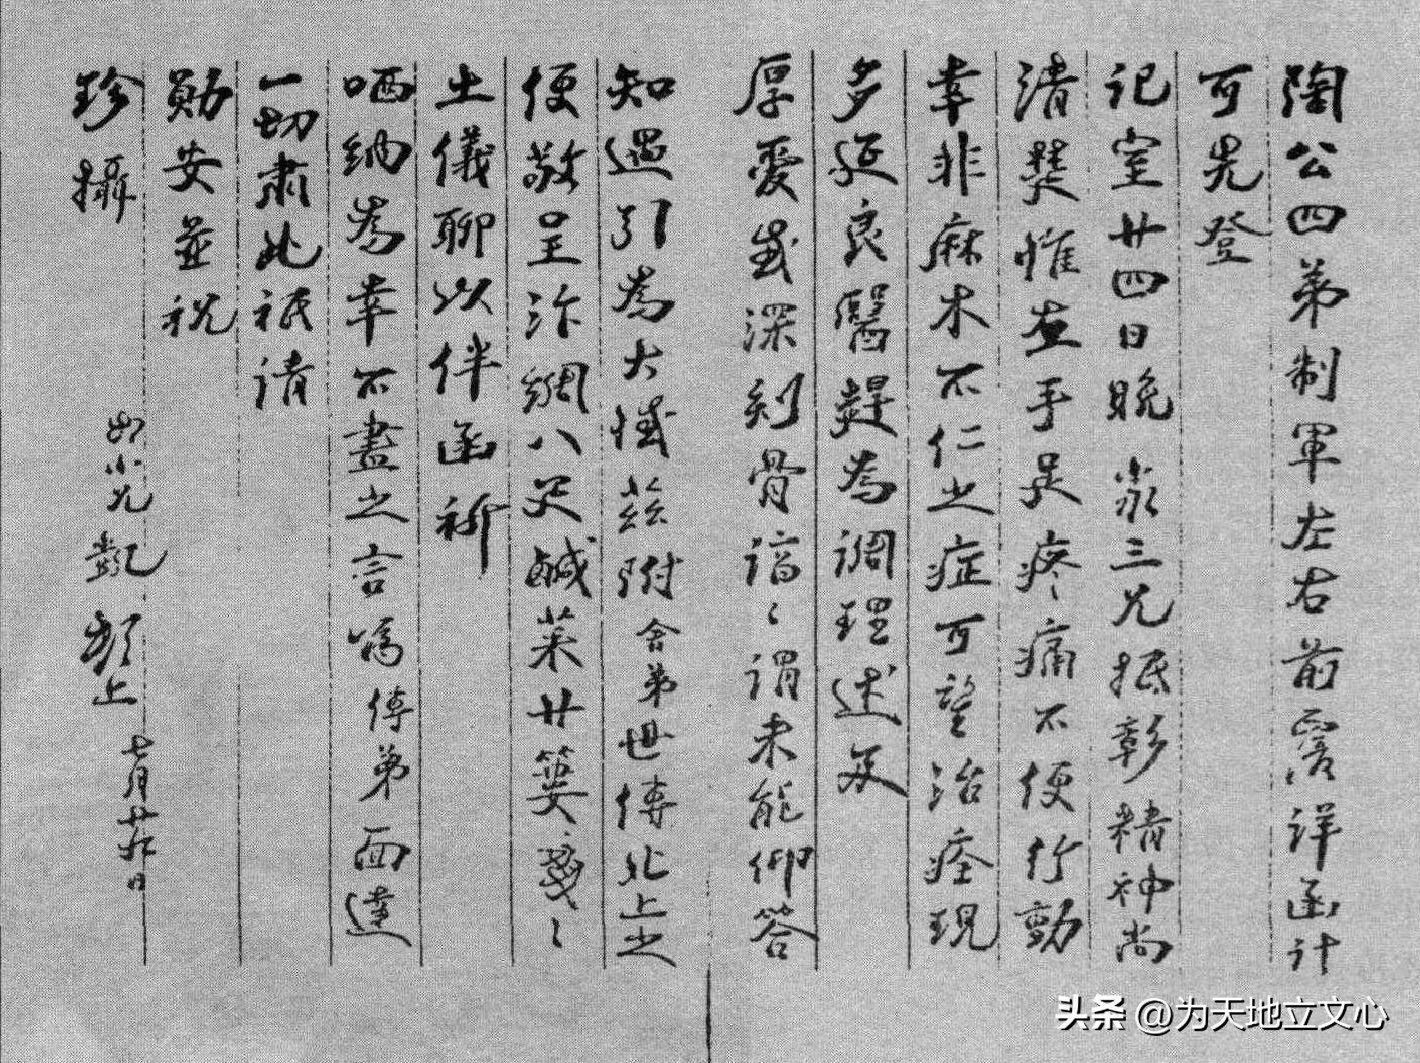 陶公四弟制軍左右前寄詳函計
可先登
记室廿四日晚 家三兄抵彰精神尚
清楚惟左手足疼痛不便行動
幸非麻木不仁之症可望治痊現
多延良醫趕為调理述及
厚愛感深刻骨謟〻謂未能仰答
知遇引為大憾兹附舍弟世傳北上之
便敬呈汴綢八疋鹹菜廿簍戔〻
土儀聊以伴函祈
哂納為幸不盡之言嘱傅弟面達
一切肅此祇请
勛安並祝
珍攝
如小兄凱 頓上
七月廿九日
头条 @为天地立文心